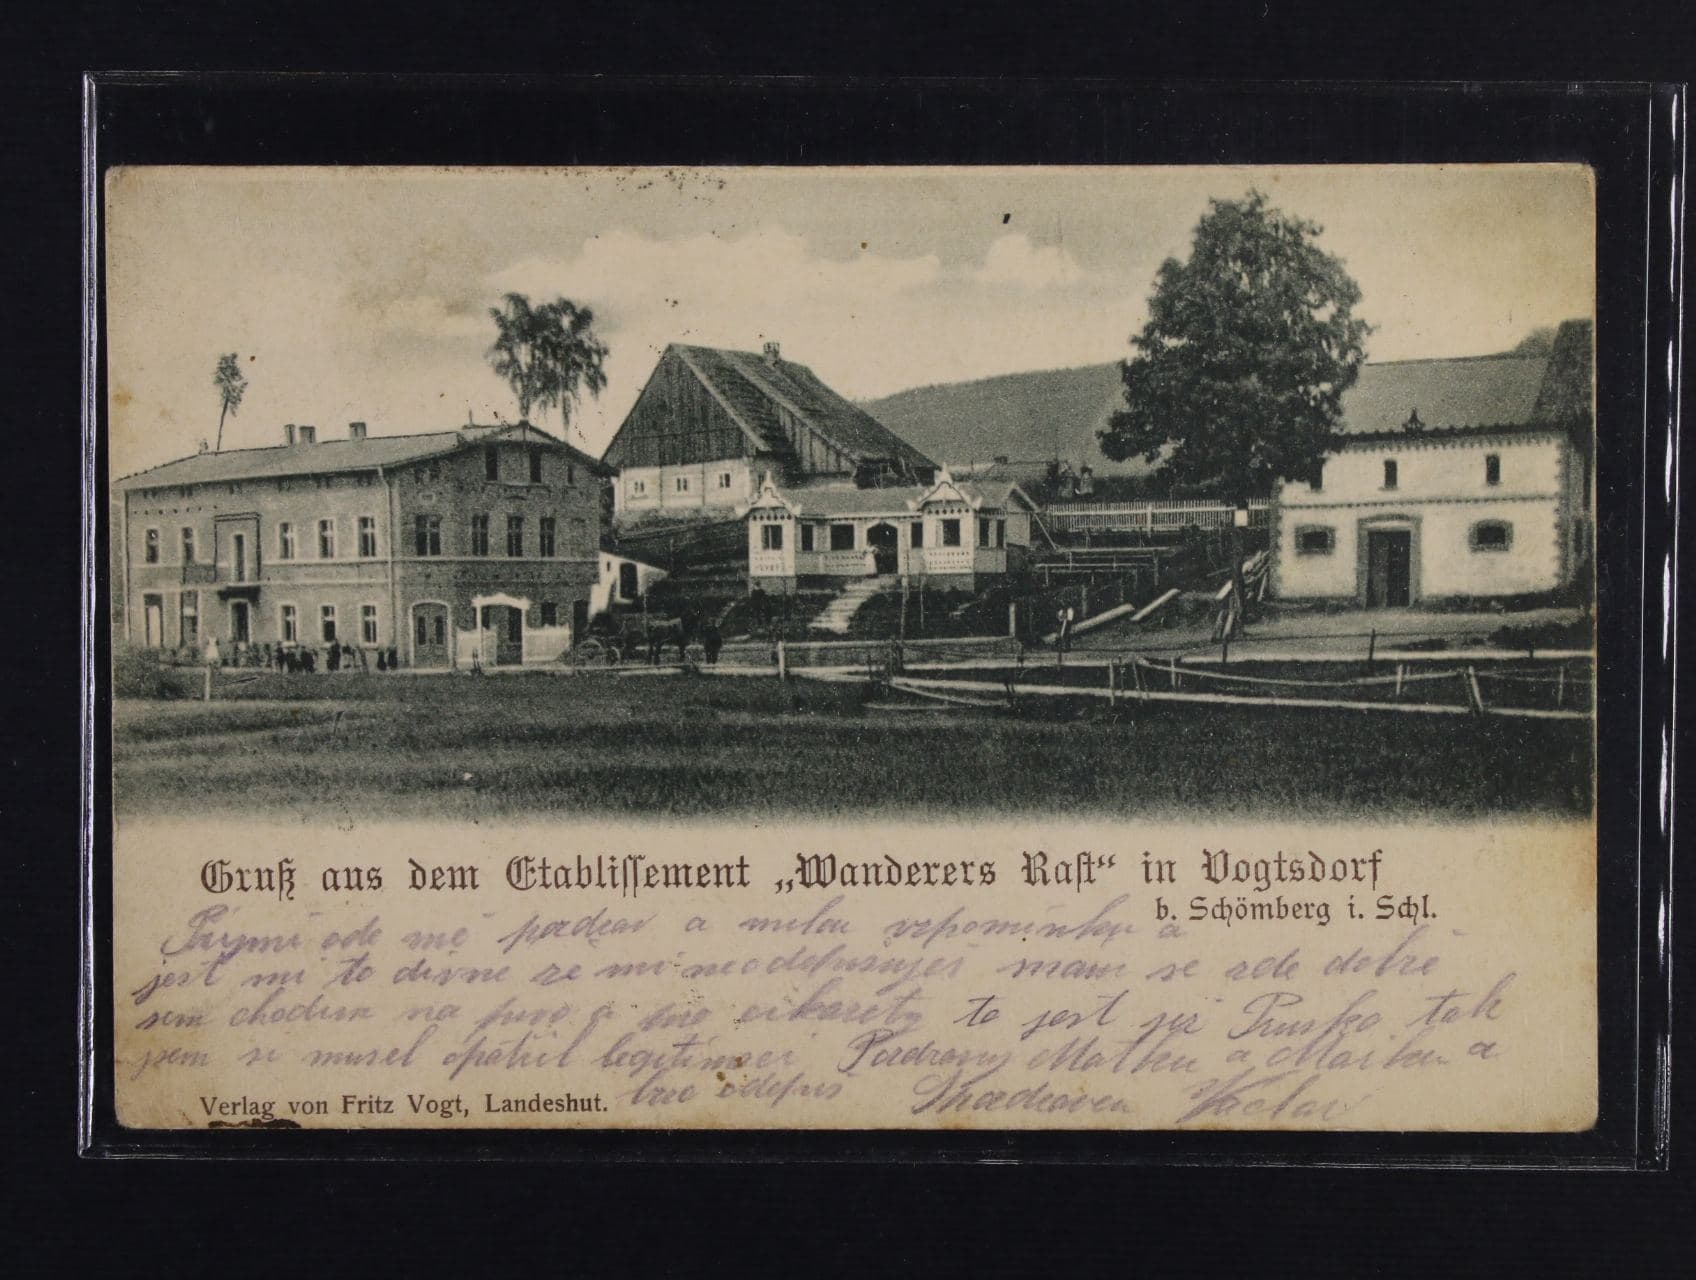 Gruß aus dem Etablissement „Wanderers Rast“ in Vogtsdorf
b. Schömberg i. Schl.
Přijmi ode mě pozdrav a milou vzpomínku a
jest mi to divne ze mi neodepisujes mam se zde dobře
sem chodim na pivo a na cikarety to jest již Prusko tak
jsem si musel opatřil legitimaci Pozdravuj Matku a a
brzo odepis Vaclav
Verlag von Fritz Vogt, Landeshut.